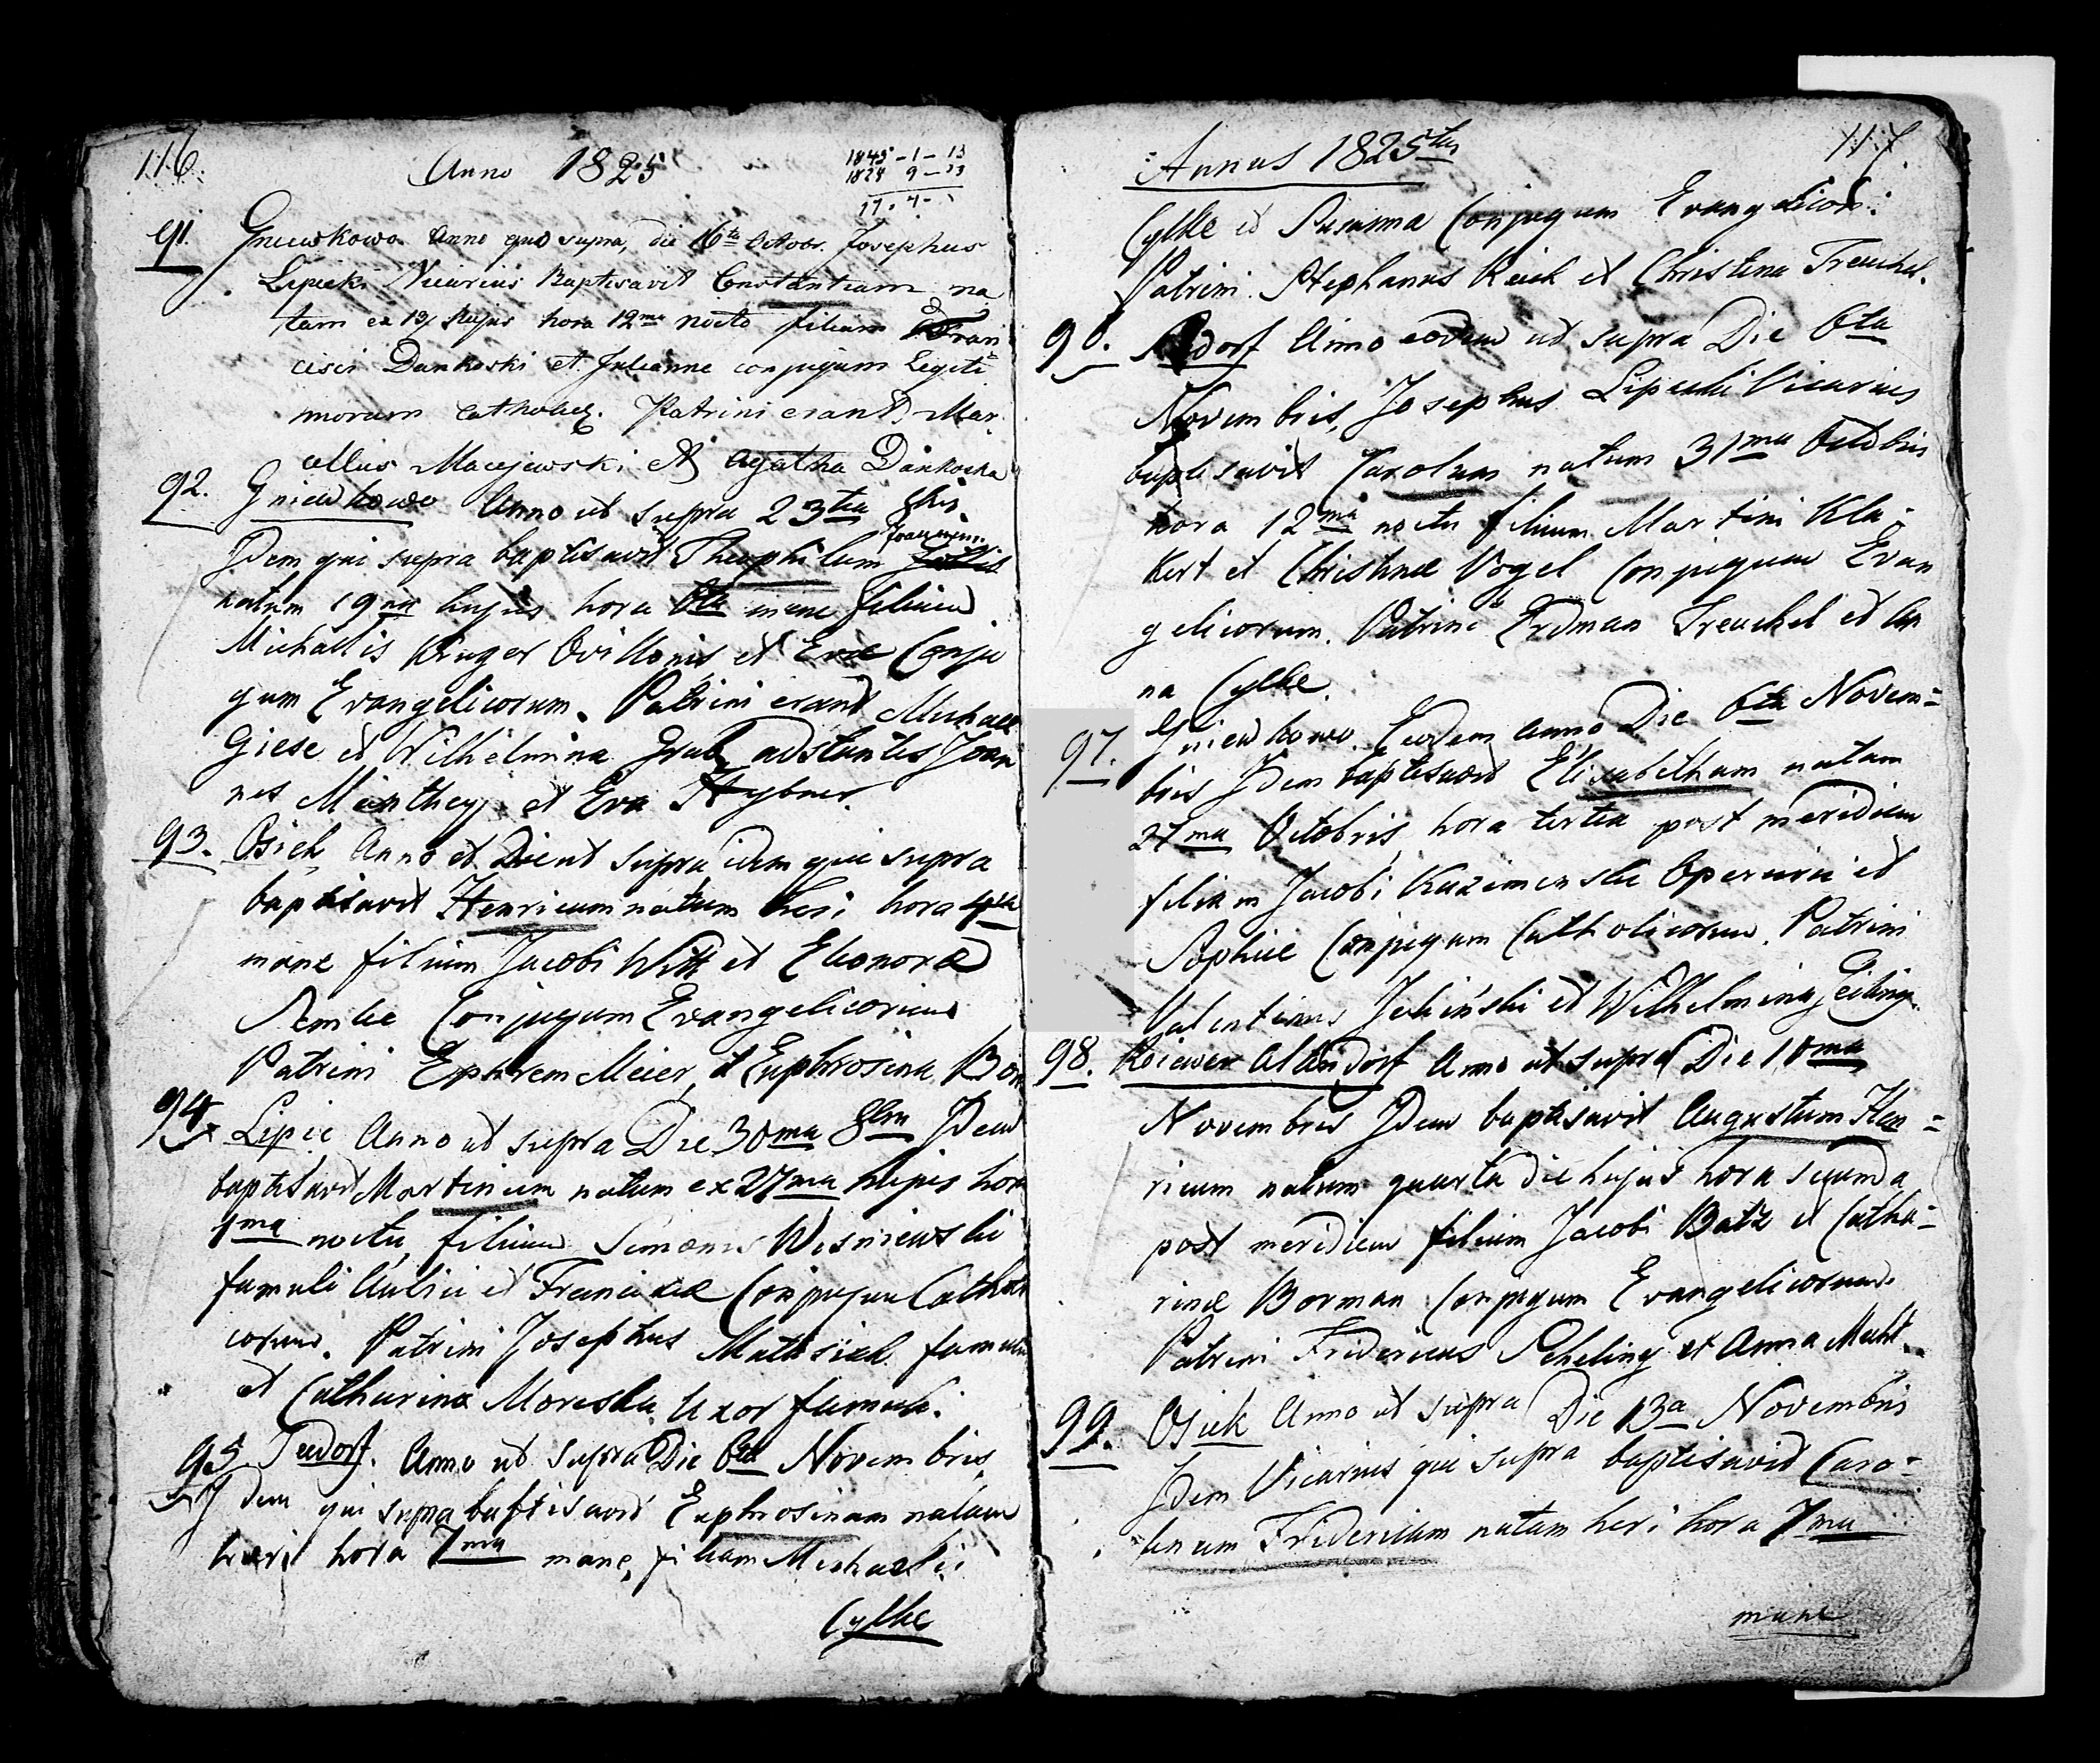 116.
Anno 1825
1845 - 1 - 13
1828 9 - 23
17 . 4 -
91. Gniewkowo Anno quo supra, die 16ta Octobr. Josephus
Lipicki Vicarius Baptisavit Constantiam na
tam ex 13 hujus hora 12ma noctu filiam Fran
cisci Dankoski et Julianne conjugum Legiti
morum catholic. Patrini erant Mar
cellus Macejewski et Agatha Dankoska
92. Gniewkowo Anno ut supra 23tia 8bris
Joannem
Idem qui supra baptisavit Theophilum
natum 19na hujus hora 6ta mane filium
Michaelis Kruger Ovilionis et Evae Conju
gum Evangelicorum. Patrini erant Michael
Giese et Wilhelmina Grub adstantes Joan
nes Manthey et Eva Hybner.
93. Osiek Anno et Die ut supra idem qui supra
baptisavit Henricum natum heri hora 4ta
mane filium Jacobi Witt et Eleonora
Conjugum Evangelicorum
Patrini Ephrem Meier, et Euphrosina Bor
94. Lipie Anno ut supra Die 30ma 8bris Idem
baptisavit Martinum natum ex 27ma hujus hora
1ma noctu, filium Simonis Wisniewski
famuli Aulici et Franciscae Conjugum Catholi
corum. Patrini Josephus Mathsiak famulus
et Catharina Moreska Uxor famuli.
95. Teedorf. Anno ut supra Die 6ta Novembris,
Idem qui supra baptisavit Euphrosinam natam
heri hora 7ma mane, filiam Michaelis
Cylke
Annus 1825tus
117.
Cylke et Susanna Conjugum Evangelicor:
Patrini Stephanus Reich et Christina Treuchel.
96. Anno eodem ut supra Die 6ta
Novembris, Josephus Lipicki Vicarius
baptisavit Carolum natum 31ma Octobris
hora 12ma noctu filium Martini Kla-
kert et Christinae Vogel Conjugum Evan
gelicorum. Patrini Erdman Treuchel et An
na Cylke.
97. Gniewkowo. Eodem anno Die 6ta Novem=
bris Idem baptisavit Elisabetham natam
27ma Octobris, hora tertia post meridiem
filiam Jacobi Kazimenski Operarii et
Sophiae Conjugum Catholicorum. Patrini
Valentinus Jeliński et Wilhelmina Geiling.
98. Kaiewer Altendorf Anno ut supra Die 10ma
Novembris Idem baptisavit Augustum Hen=
ricum natum quarta die hujus hora secunda
post meridiem filium Jacobi Batz et Catha=
rinae Borman Conjugum Evangelicorum.
Patrini Fridericus Scheling et Anna Meht.
99. Osiek Anno ut supra Die 13a Novembris
Idem Vicarius qui supra baptisavit Caro=
linam Fridericam natam heri hora 7ma
mane